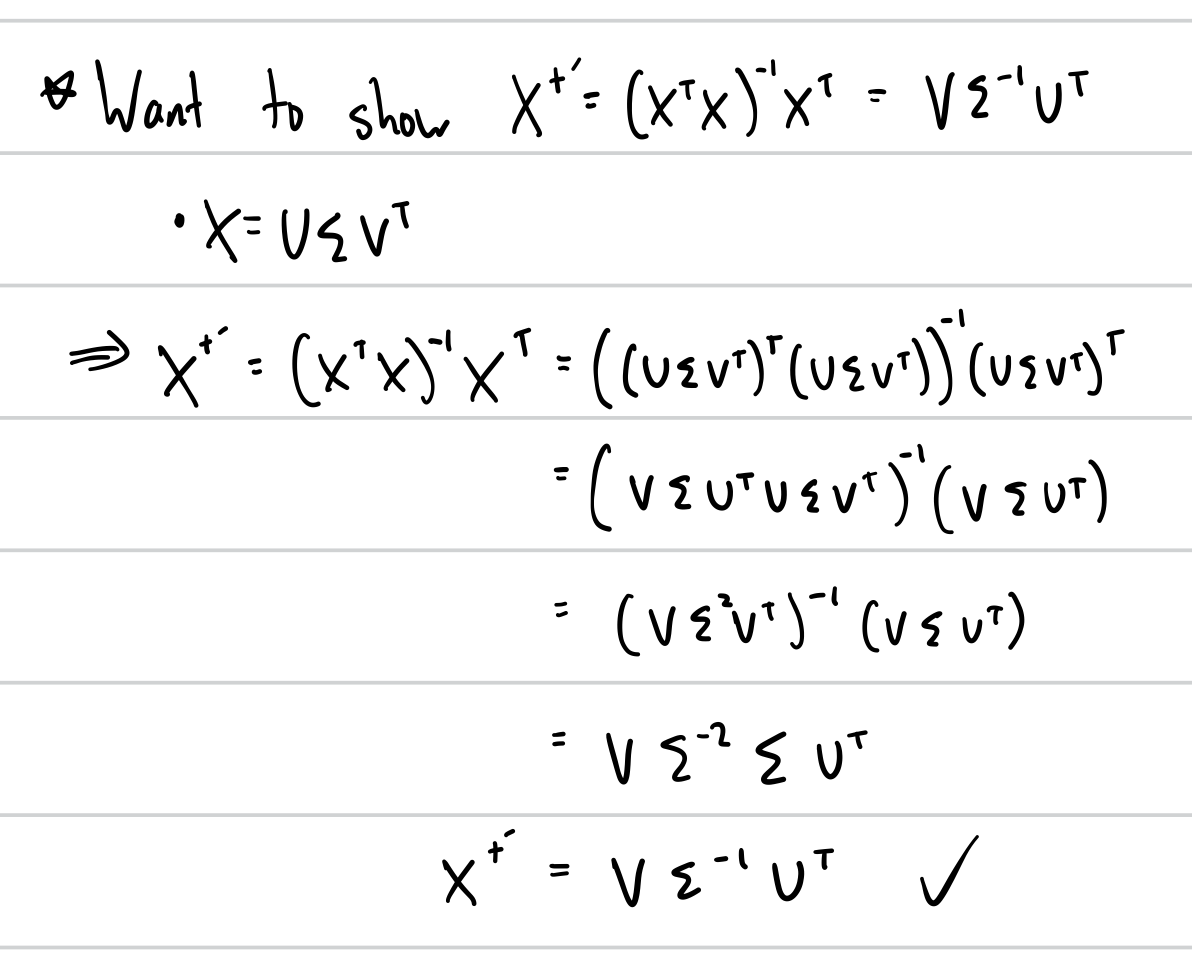 ☆ Want to show X⁺′ = (XᵀX)⁻¹Xᵀ = VΣ⁻¹Uᵀ
• X = UΣVᵀ
⇒ X⁺′ = (XᵀX)⁻¹Xᵀ = ((UΣVᵀ)ᵀ(UΣVᵀ))⁻¹(UΣVᵀ)ᵀ
= (VΣUᵀUΣVᵀ)⁻¹(VΣUᵀ)
= (VΣ²Vᵀ)⁻¹(VΣUᵀ)
= VΣ⁻²ΣUᵀ
X⁺′ = VΣ⁻¹Uᵀ ✓